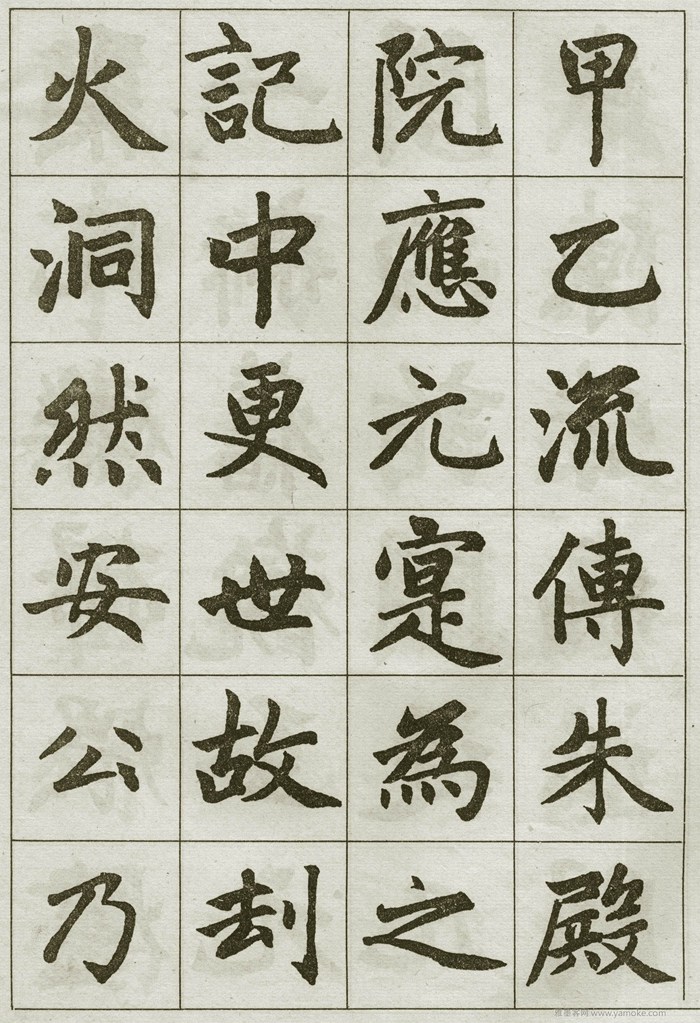 甲乙流傳朱殿
院應元寔為之
記中更世故刦
火洞然安公乃
雅墨客网:www.yamoke.com